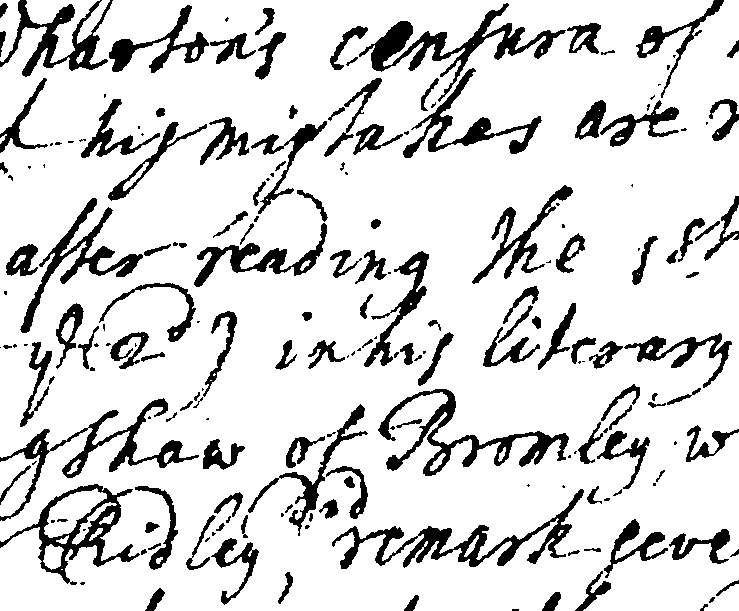 Wharton's censura of
his mistakes are
after reading the 1st
ye (2d) in his literary
gshaw of Bromley, w
Ridley, did remark seve